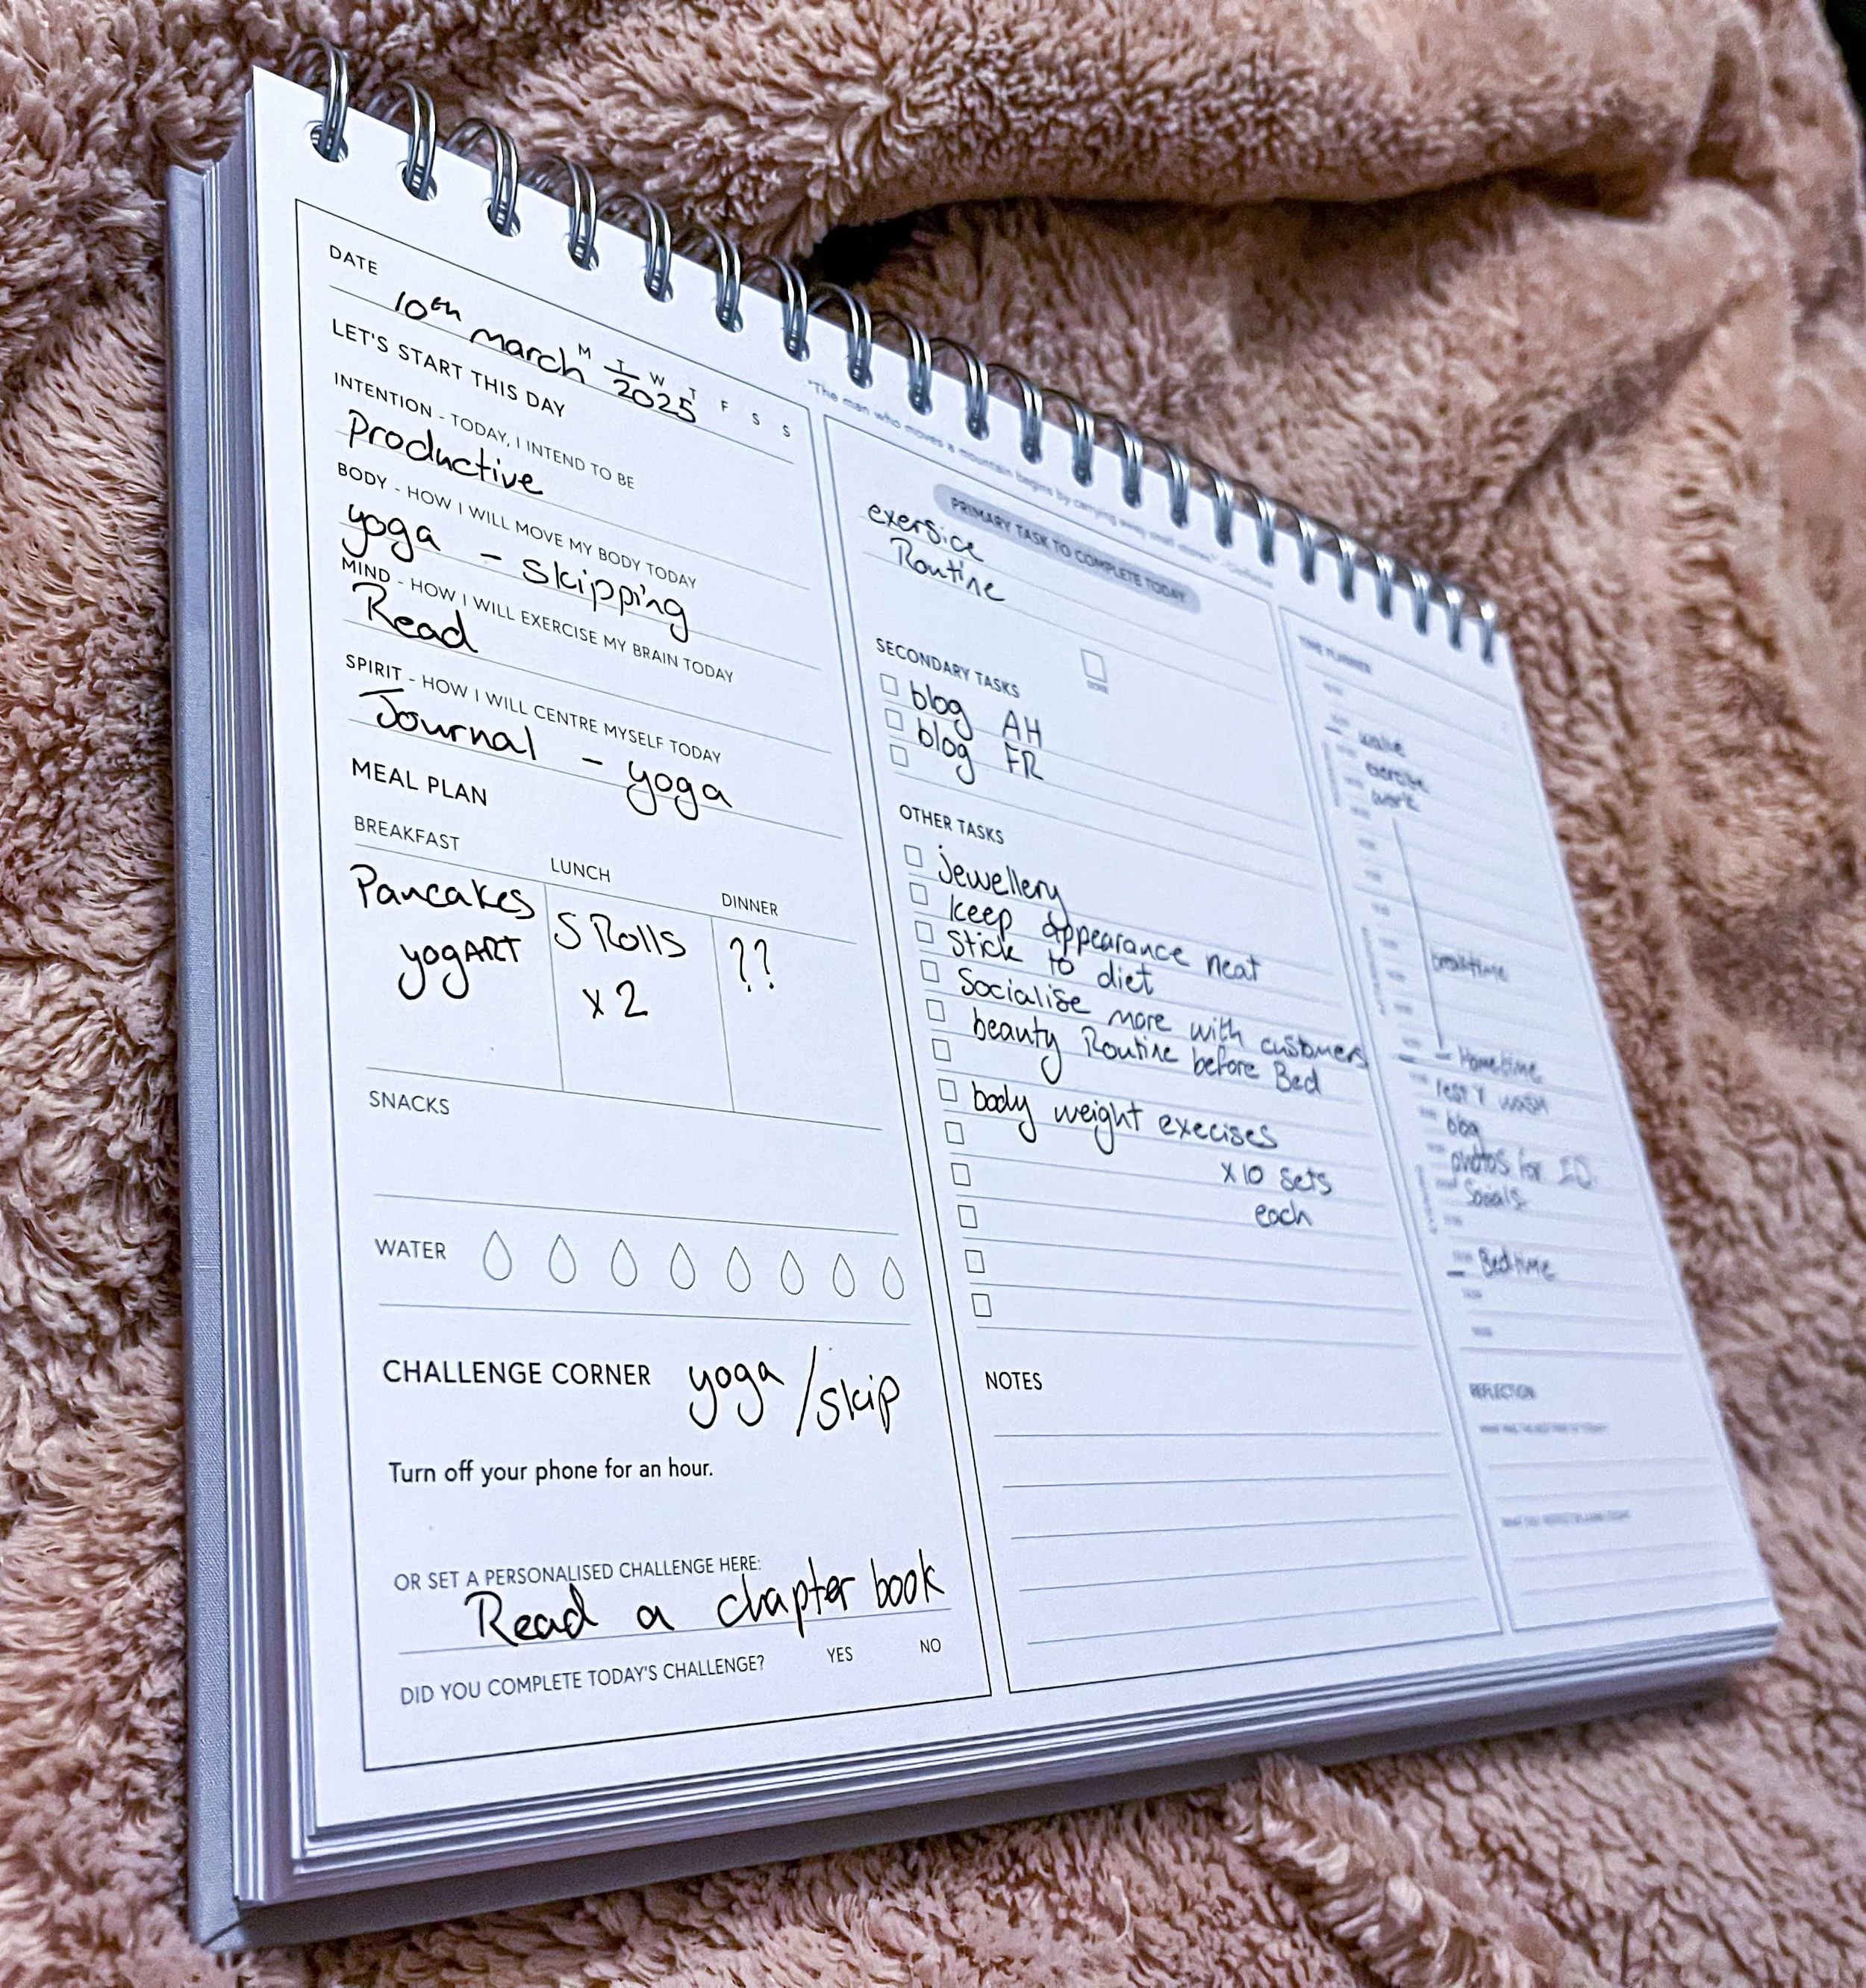 DATE
M T W T F S S
10th march 2025
LET'S START THIS DAY
INTENTION - TODAY, I INTEND TO BE
Productive
BODY - HOW I WILL MOVE MY BODY TODAY
yoga - skipping
MIND - HOW I WILL EXERCISE MY BRAIN TODAY
Read
SPIRIT - HOW I WILL CENTRE MYSELF TODAY
Journal - yoga
MEAL PLAN
BREAKFAST
Pancakes
yogART
LUNCH
S Rolls
x 2
DINNER
??
SNACKS
WATER
CHALLENGE CORNER yoga / skip
Turn off your phone for an hour.
OR SET A PERSONALISED CHALLENGE HERE:
Read a chapter book
DID YOU COMPLETE TODAY'S CHALLENGE? YES NO
"The man who moves a mountain begins by carrying away small stones."
PRIMARY TASK TO COMPLETE TODAY
exersice
Routine
DONE
SECONDARY TASKS
blog AH
blog FR
OTHER TASKS
jewellery
keep appearance neat
Stick to diet
Socialise more with customers
beauty Routine before Bed
body weight execises
x10 sets
each
NOTES
TIME PLANNER
wake
exercise
work
breaktime
- Hometime
rest Y wash
blog
photos for
Socials
Bedtime
REFLECTION